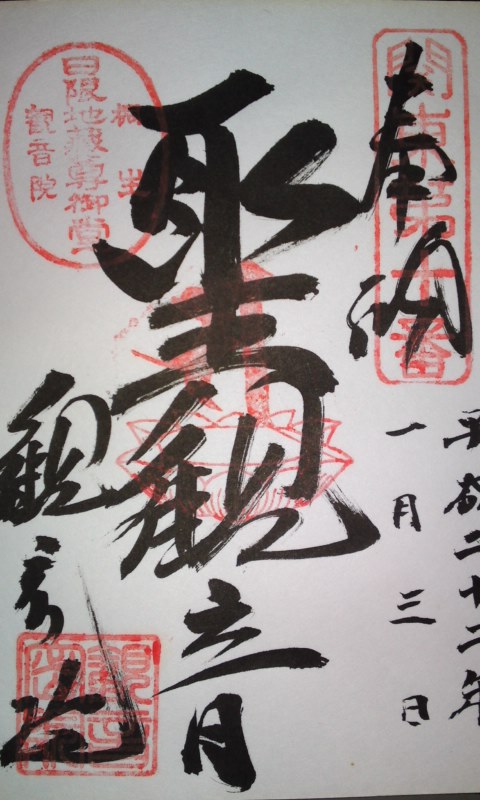 奉納
関東第十番
平成二十二年
一月三日
聖観音
桐生
日限地蔵尊御堂
観音院
観音院